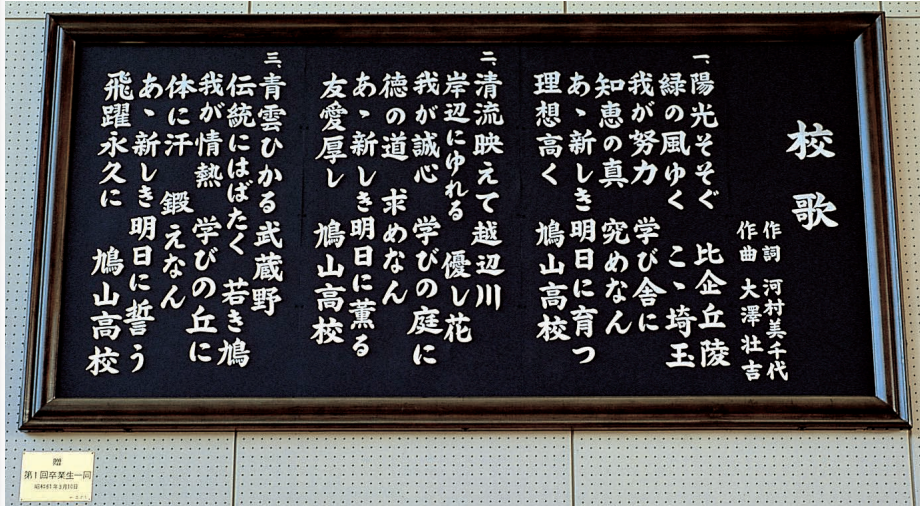 校歌
作詞 河村美千代
作曲 大澤壮吉
一、陽光そそぐ 比企丘陵
緑の風ゆく こゝ埼玉
我が努力 学び舎に
知恵の真 究めなん
あゝ新しき 明日に育つ
理想高く 鳩山高校
二、清流映えて越辺川
岸辺にゆれる 優し花
我が誠心 学びの庭に
徳の道 求めなん
あゝ新しき明日に薫る
友愛厚し 鳩山高校
三、青雲ひかる武蔵野
伝統にはばたく 若き鳩
我が情熱 学びの丘に
体に汗 鍛えなん
あゝ新しき明日に誓う
飛躍永久に 鳩山高校
贈
第1回卒業生一同
昭和61年3月10日